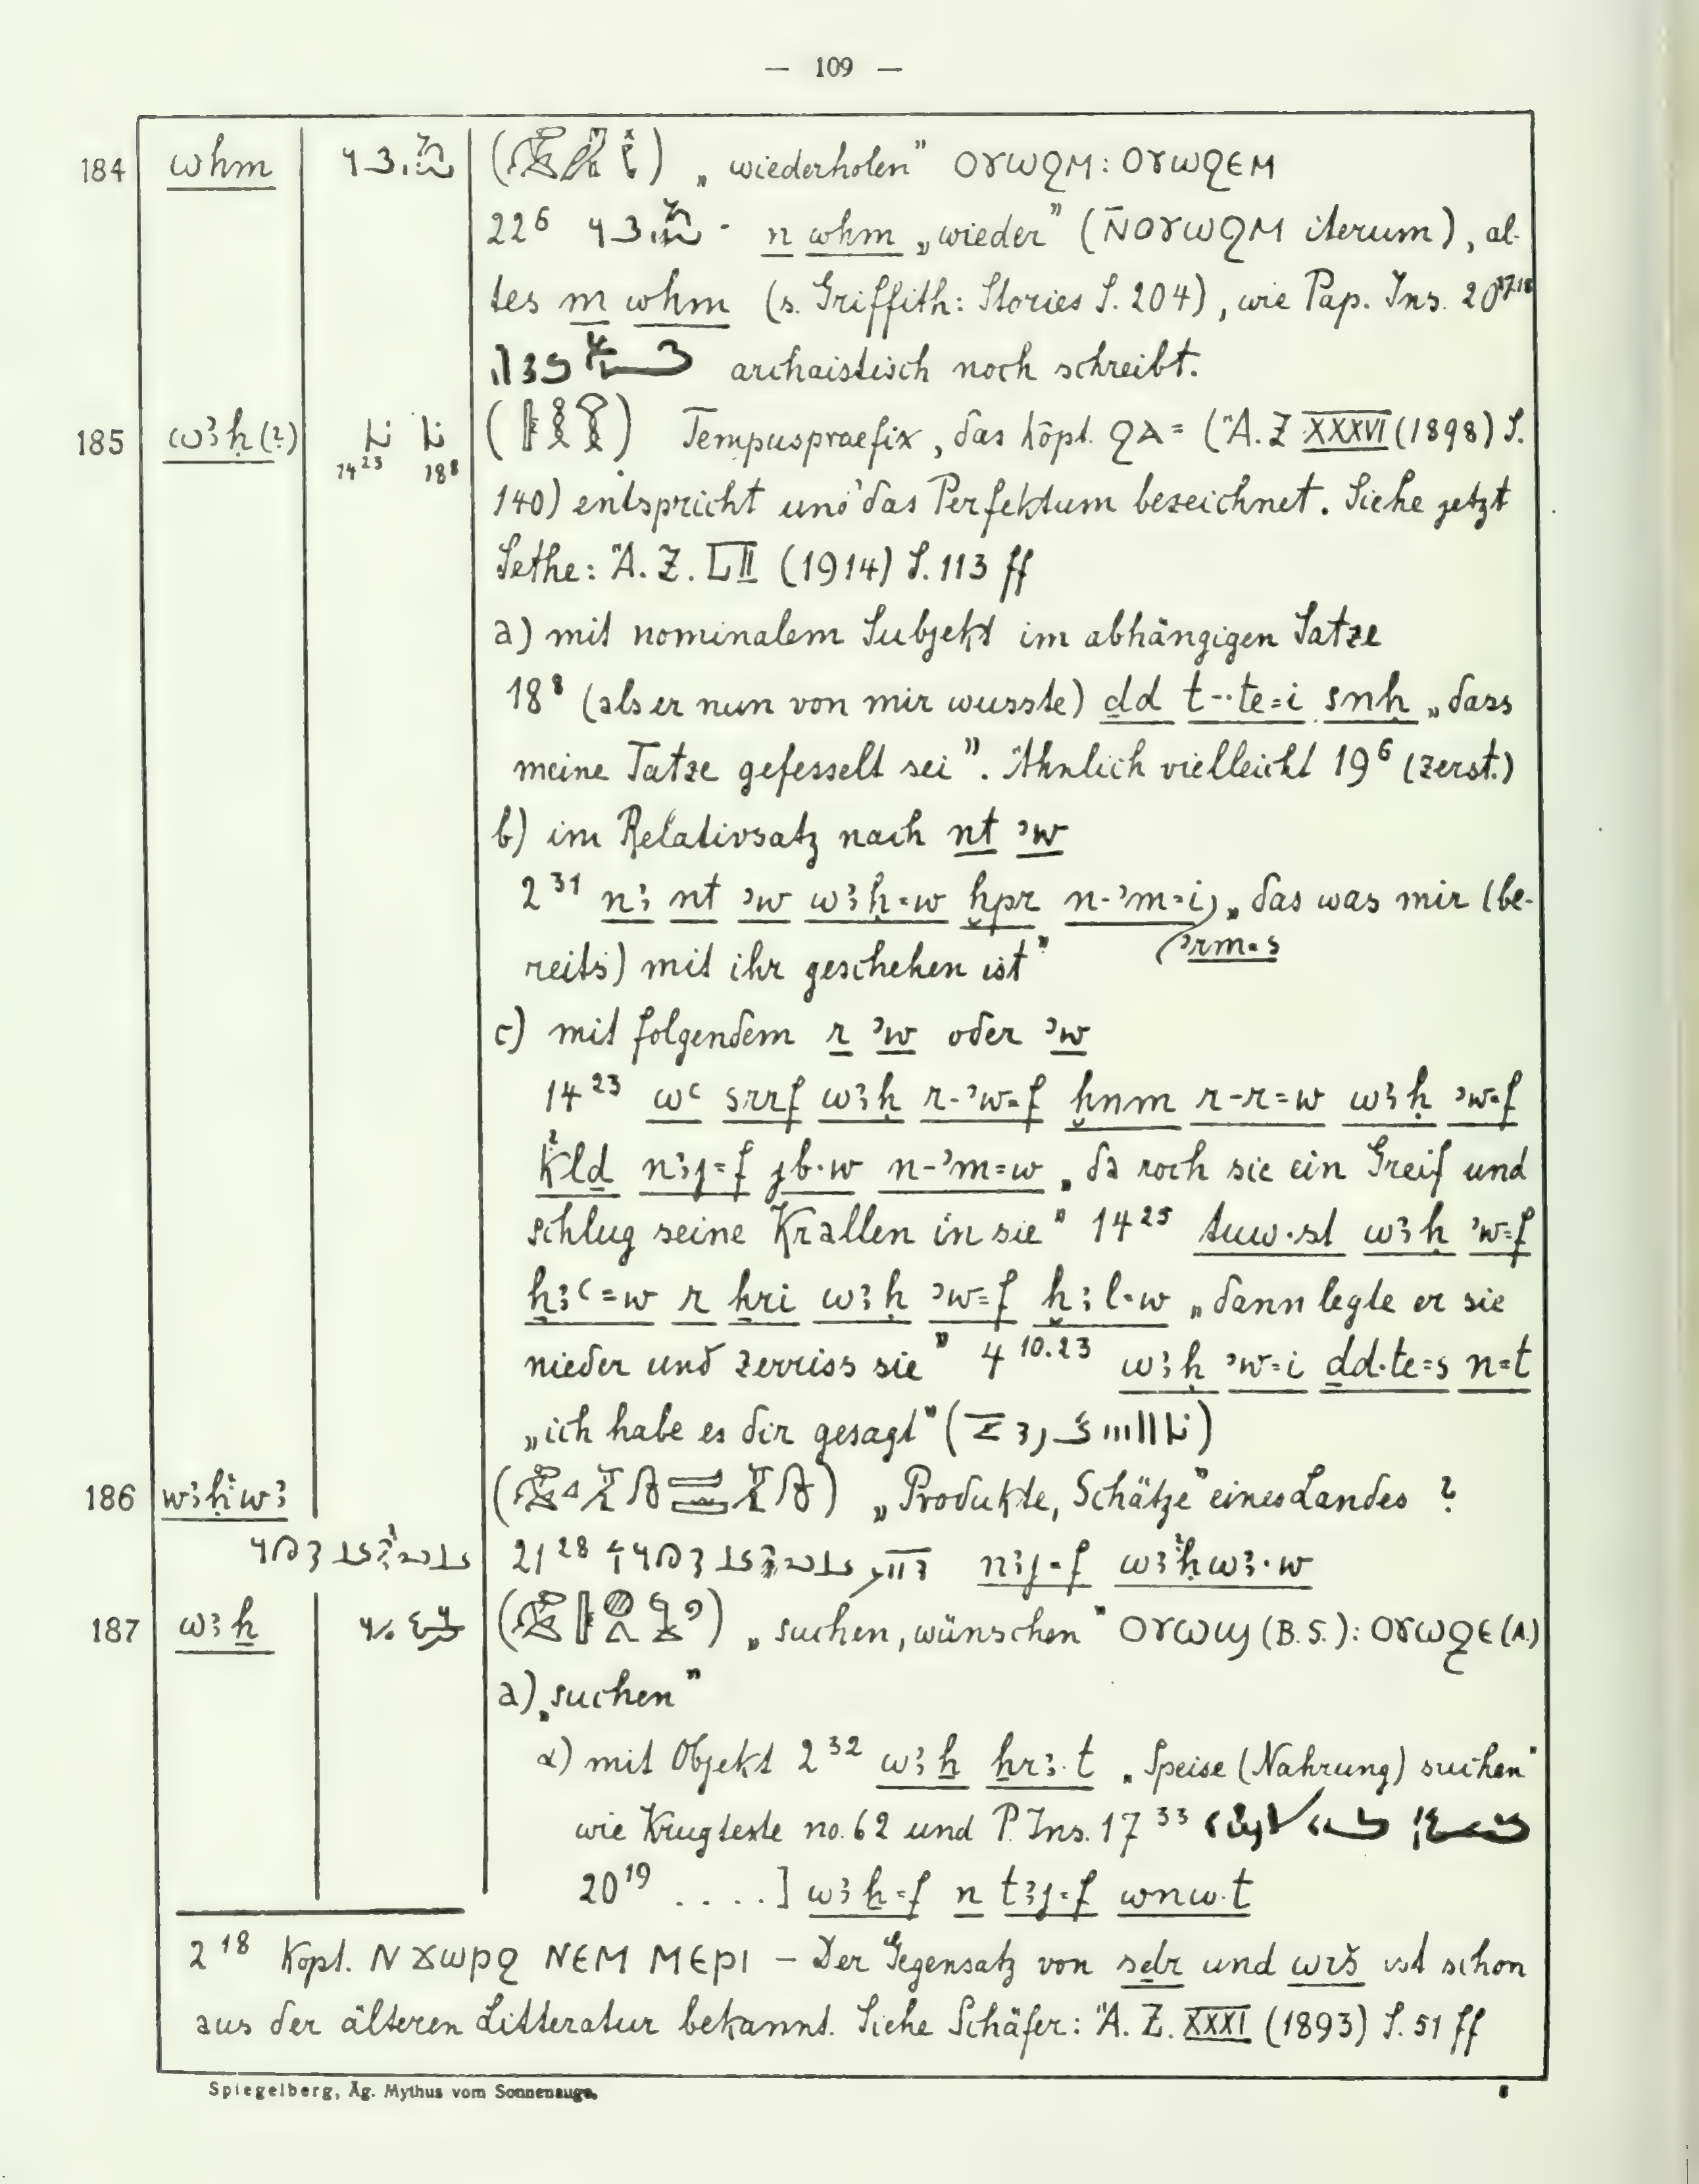 — 109 —
184 whm „wiederholen” ⲟⲩⲱϩⲙ : ⲟⲩⲱϩⲉⲙ
22⁶ n whm „wieder” (ⲛ̄ⲟⲩⲱϩⲙ iterum), al-
tes m whm (s. Griffith: Stories S. 204), wie Pap. Ins. 20¹⁷·¹⁸
archaistisch noch schreibt.
185 wꜣḥ(?) 14²³ 18⁸ Tempuspraefix, das kopt. ϩⲁ= (Ä.Z XXXVI (1898) S.
140) entspricht und das Perfektum bezeichnet. Siehe jetzt
Sethe: Ä. Z. LII (1914) S. 113 ff
a) mit nominalem Subjekt im abhängigen Satze
18⁸ (als er nun von mir wusste) ḏd t··te=i snḥ „dass
meine Tatze gefesselt sei”. Ähnlich vielleicht 19⁶ (zerst.)
b) im Relativsatz nach nt ʾw
2³¹ nꜣ nt ʾw wꜣḥ=w ḫpr n-ʾm=i, „das was mir (be-
(ʾrm=s
reits) mit ihr geschehen ist”
c) mit folgendem r ʾw oder ʾw
14²³ wꜥ srrf wꜣḥ r-ʾw=f ḫnm r-r=w wꜣḥ ʾw=f
ḳlḏ nꜣj=f jb·w n-ʾm=w „da roch sie ein Greif und
schlug seine Krallen in sie” 14²⁵ tuw·st wꜣḥ ʾw=f
ẖꜣꜥ=w r ẖri wꜣḥ ʾw=f ḫꜣl=w „dann legte er sie
nieder und zerriss sie” 4¹⁰·²³ wꜣḥ ʾw=i ḏd·te=s n=t
„ich habe es dir gesagt”
186 wꜣḥ̓wꜣ „Produkte, Schätze” eines Landes ?
21²⁸ nꜣj=f wꜣḥ̓wꜣ·w
187 wꜣẖ „suchen, wünschen” ⲟⲩⲱϣ (B.S.): ⲟⲩⲱϩⲉ (A.)
a) „suchen”
α) mit Objekt 2³² wꜣẖ ẖrꜣ·t „Speise (Nahrung) suchen”
wie Krugtexte no. 62 und P. Ins. 17³³
20¹⁹ . . . . ] wꜣẖ=f n tꜣj=f wnw·t
2¹⁸ Kopt. ⲛϫⲱⲣϩ ⲛⲉⲙ ⲙⲉⲣⲓ – Der Gegensatz von sḏr und wrš ist schon
aus der älteren Litteratur bekannt. Siehe Schäfer: Ä. Z. XXXI (1893) S. 51 ff
Spiegelberg, Äg. Mythus vom Sonnenauge.